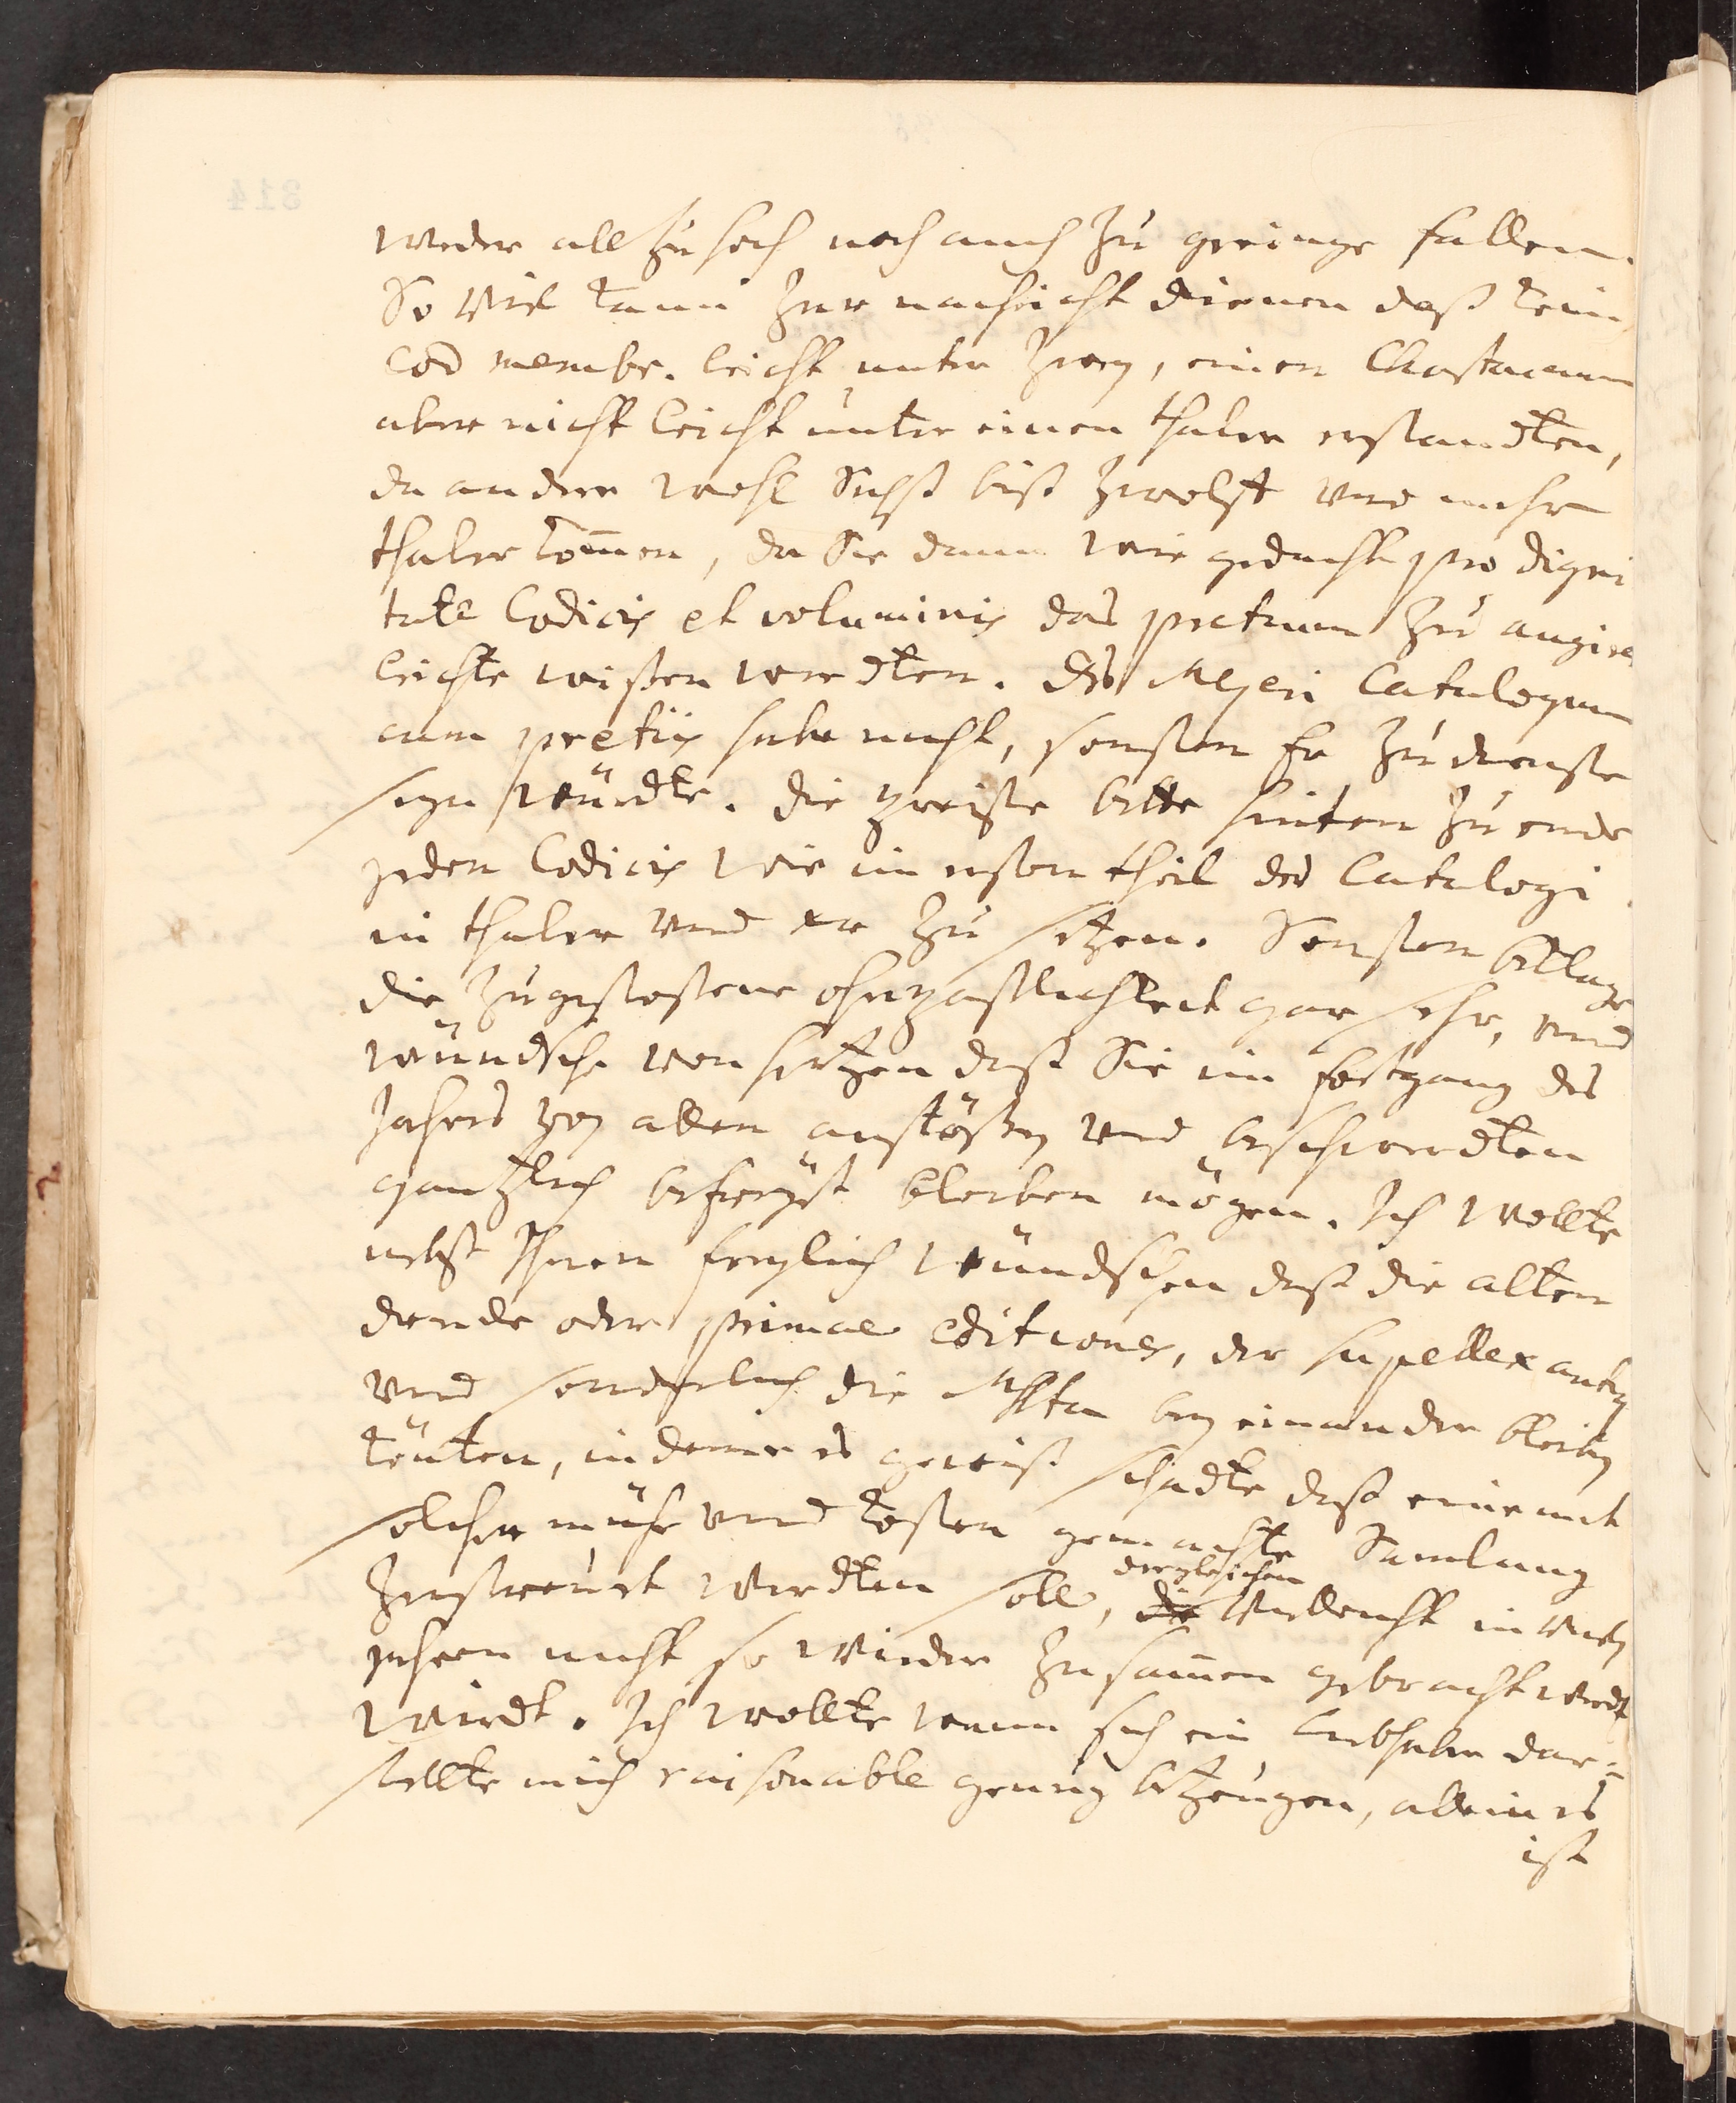 weder all zu hoch noch auch zu geringe fallen.
So viel kann zur nachricht dienen daß kein
Cod membr. leicht unter zwey, einen Chartaceum
aber nicht leicht unter einen thaler erstandten,
da andere wohl Sechß biß zwolff und mehr
thaler kom̄en, da Sie dann wie gedacht pro digni
tate Codicis et voluminis das pretium zu augire
leichte wißen werdten. Des Meyeri Catalogum
cum pretiis habe nicht, sonsten Er zu dienste
seyn würdte. Die preiße bitte hinten zu ende
jeden Codicis wie im ersten theil des Catalogi
in thaler und xr zu setzen. Sonsten beklage
die zugestoßene ohnpäßlichkeit gar sehr, und
wündsche von hertzen daß Sie im fortgang des
Jahres von allen anstößen und beschwerdten
gäntzlich befreyet bleiben mögen. Ich wollte
nebst Ihnen freylich wündschen daß die alten
drucke oder primae editiones, der supellex antiq
und sonderlich die Mssta bey einander bleiben
könten, in deme es gewiß schadte daß eine mit
solcher mühe und kosten gemachte Samlung
zerstreuet werdten soll, die dergleichen villeicht in vielen
jahren nicht so wieder zusam̄en gebracht werdt
wirdt. Ich wollte wann sich ein liebhaber dar=
stellte mich raisonable genug bezeugen, allein es
ist